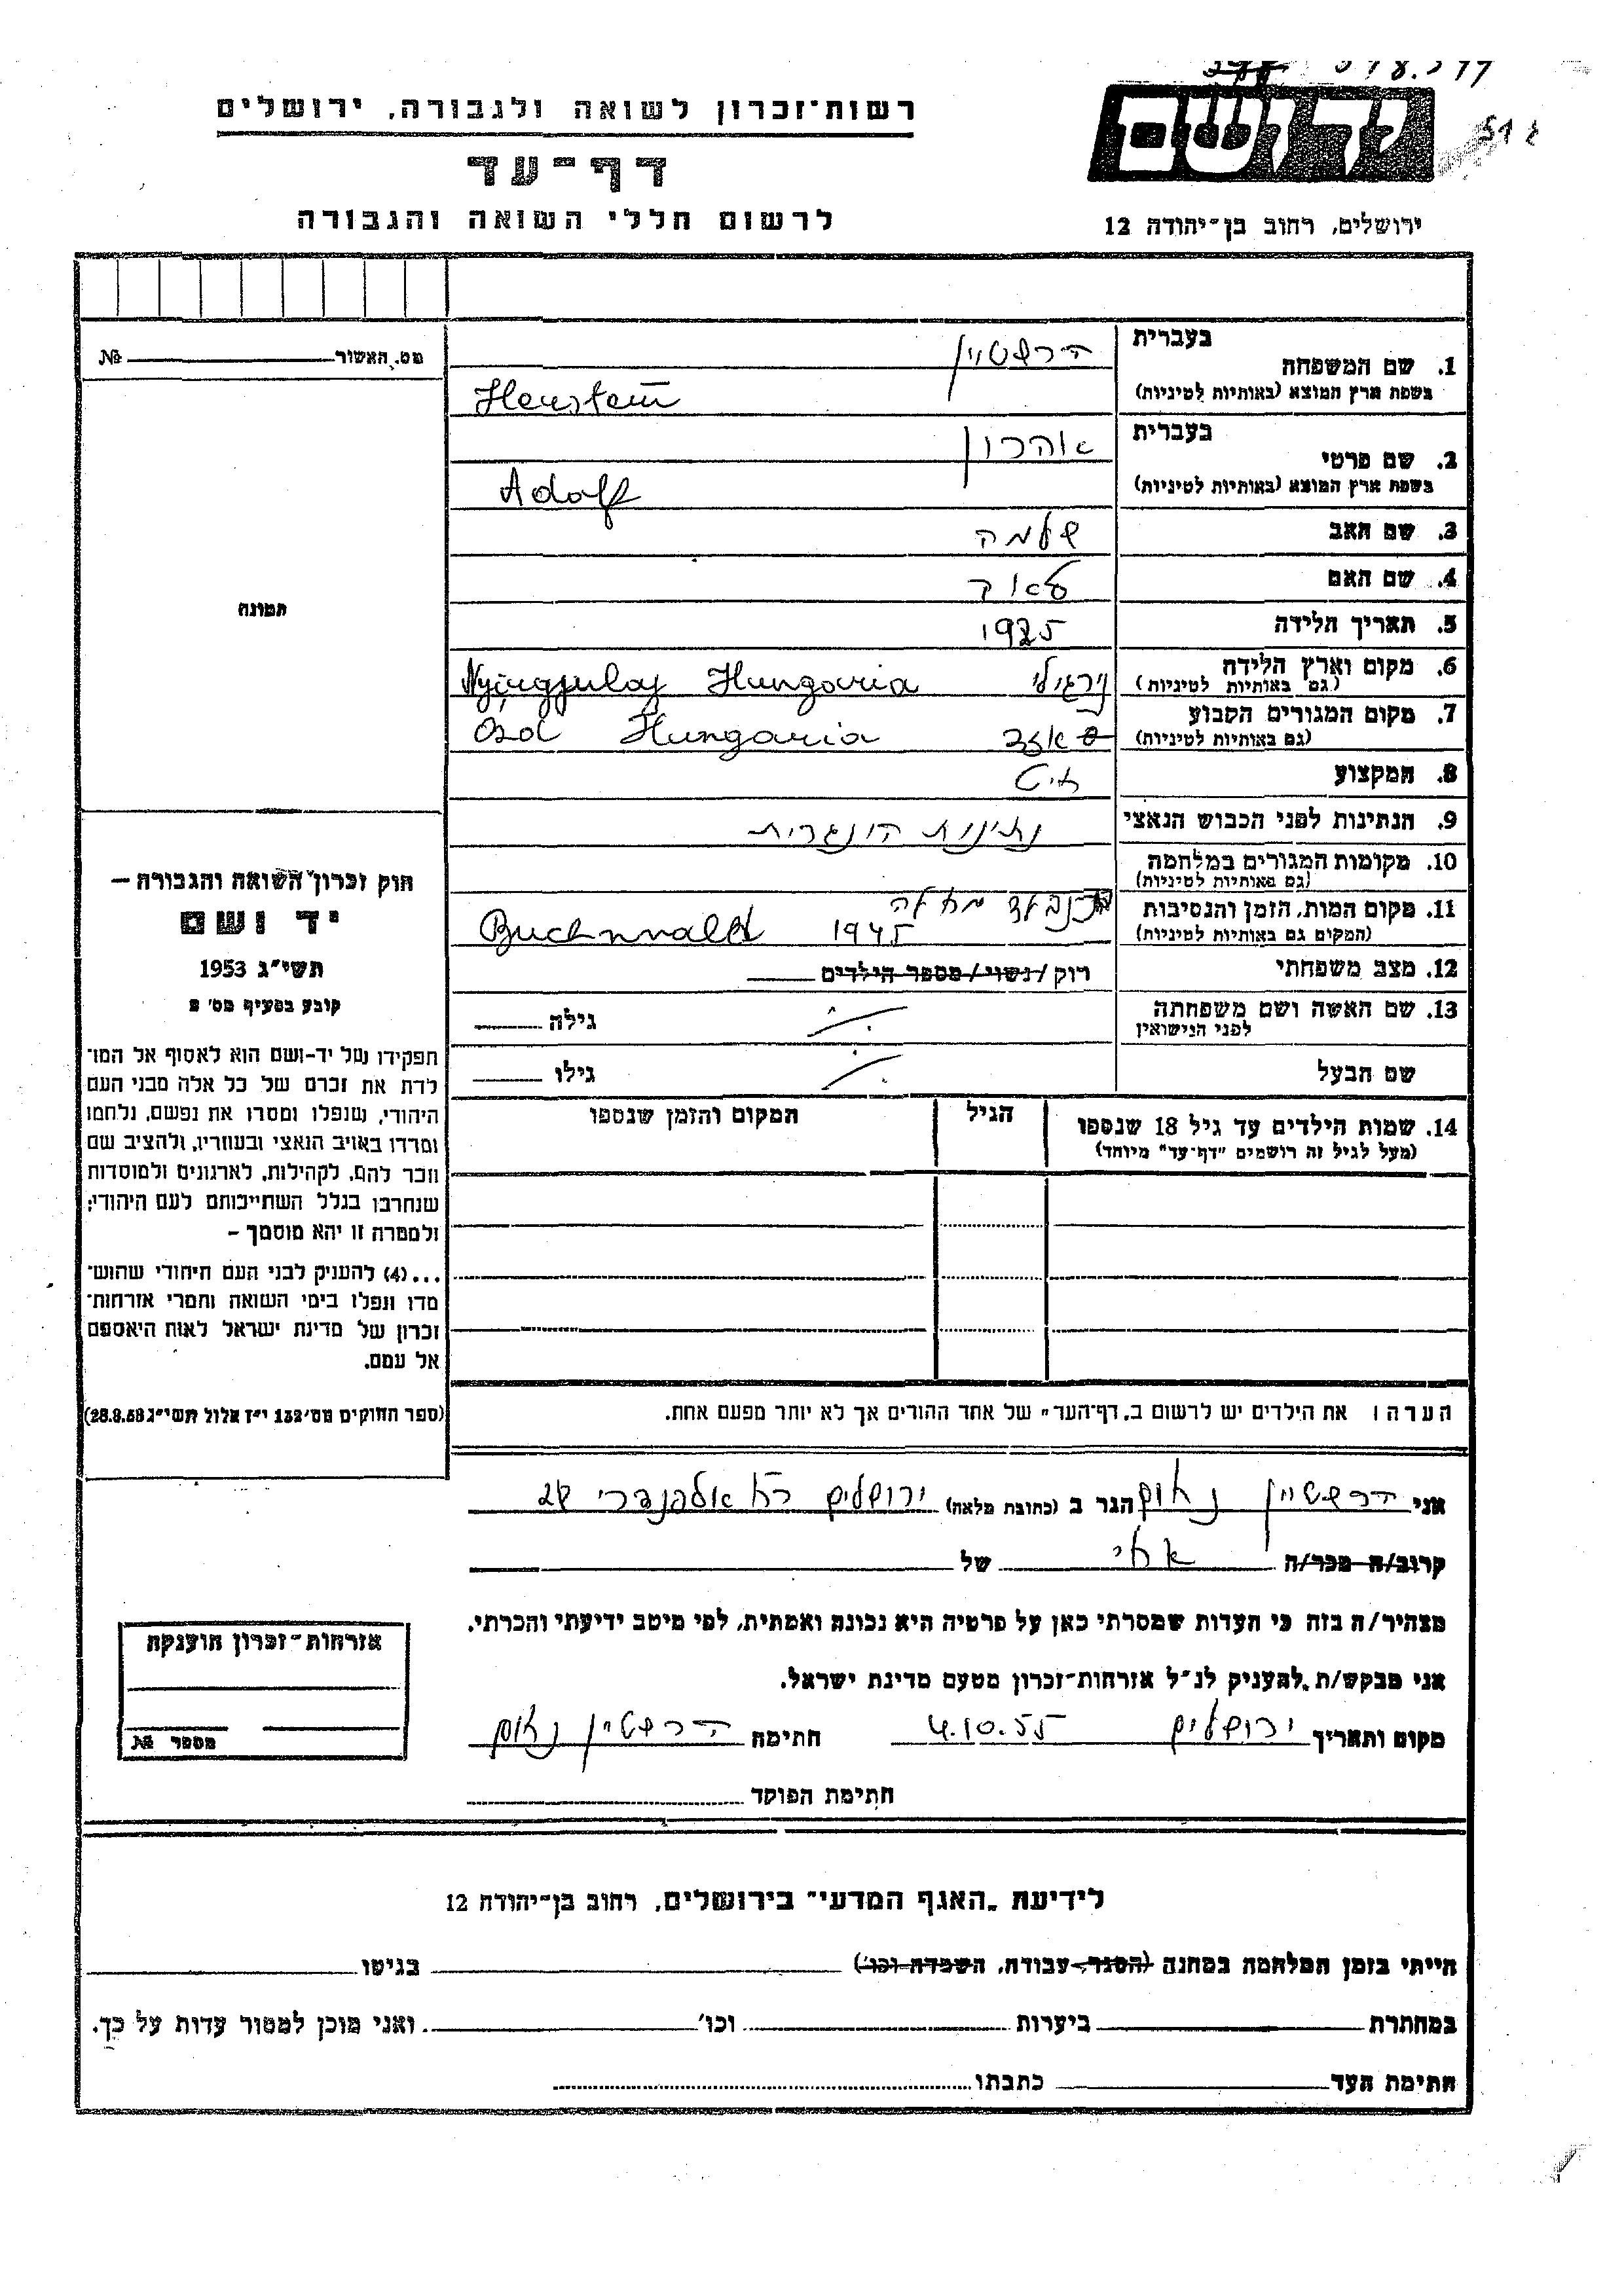 רשות־זכרון לשואה ולגבורה, ירושלים
דף־עד
לרשום חללי השואה והגבורה
יד ושם
ירושלים, רחוב בן־יהודה 12
מס. האשור №
תמונה
בעברית
1. שם המשפחה הרשטיין
בשפת ארץ המוצא (באותיות לטיניות) Herstein
בעברית
2. שם פרטי אהרון
בשפת ארץ המוצא (באותיות לטיניות) Adolf
3. שם האב שלמה
4. שם האם
5. תאריך הלידה 1925
6. מקום וארץ הלידה
(גם באותיות לטיניות) Hungaria
7. מקום המגורים הקבוע
(גם באותיות לטיניות) Hungaria
8. המקצוע
9. הנתינות לפני הכבוש הנאצי נתינות הונגרית
10. מקומות המגורים במלחמה
(גם באותיות לטיניות)
11. מקום המות, הזמן והנסיבות
(המקום גם באותיות לטיניות) 1945 Buchnwald
12. מצב משפחתי רוק / נשוי / מספר הילדים
13. שם האשה ושם משפחתה גילה
לפני הנישואין
שם הבעל גילו
14. שמות הילדים עד גיל 18 שנספו הגיל המקום והזמן שנספו
(מעל לגיל זה רושמים "דף־עד" מיוחד)
הערה: את הילדים יש לרשום ב„דף־העד" של אחד ההורים אך לא יותר מפעם אחת.
חוק זכרון השואה והגבורה —
יד ושם
תשי"ג 1953
קובע בסעיף מס' 2
תפקידו של יד־ושם הוא לאסוף אל המו־
לדת את זכרם של כל אלה מבני העם
היהודי, שנפלו ומסרו את נפשם, נלחמו
ומרדו באויב הנאצי ובעוזריו, ולהציב שם
וזכר להם, לקהילות, לארגונים ולמוסדות
שנחרבו בגלל השתייכותם לעם היהודי;
ולמטרה זו יהא מוסמך —
...(4) להעניק לבני העם היהודי שהוש־
מדו ונפלו בימי השואה והמרי אזרחות־
זכרון של מדינת ישראל לאות היאספם
אל עמם.
(ספר החוקים מס' 132 י"ז אלול תשי"ג 28.8.53)
אני הרשטיין נחום הגר ב (כתובת מלאה) ירושלים
קרוב/ה מכר/ה אחי של
מצהיר/ה בזה כי העדות שמסרתי כאן על פרטיה היא נכונה ואמתית, לפי מיטב ידיעתי והכרתי.
אני מבקש/ת להעניק לנ"ל אזרחות־זכרון מטעם מדינת ישראל.
מקום ותאריך ירושלים 4.10.55 חתימה הרשטיין נחום
חתימת הפוקד
אזרחות־זכרון הוענקה
מספר №
לידיעת „האגף המדעי" בירושלים, רחוב בן־יהודה 12
הייתי בזמן המלחמה במחנה (הסגר, עבודה, השמדה וכו') בגיטו
במחתרת ביערות וכו' ואני מוכן למסור עדות על כך.
חתימת העד כתבתו